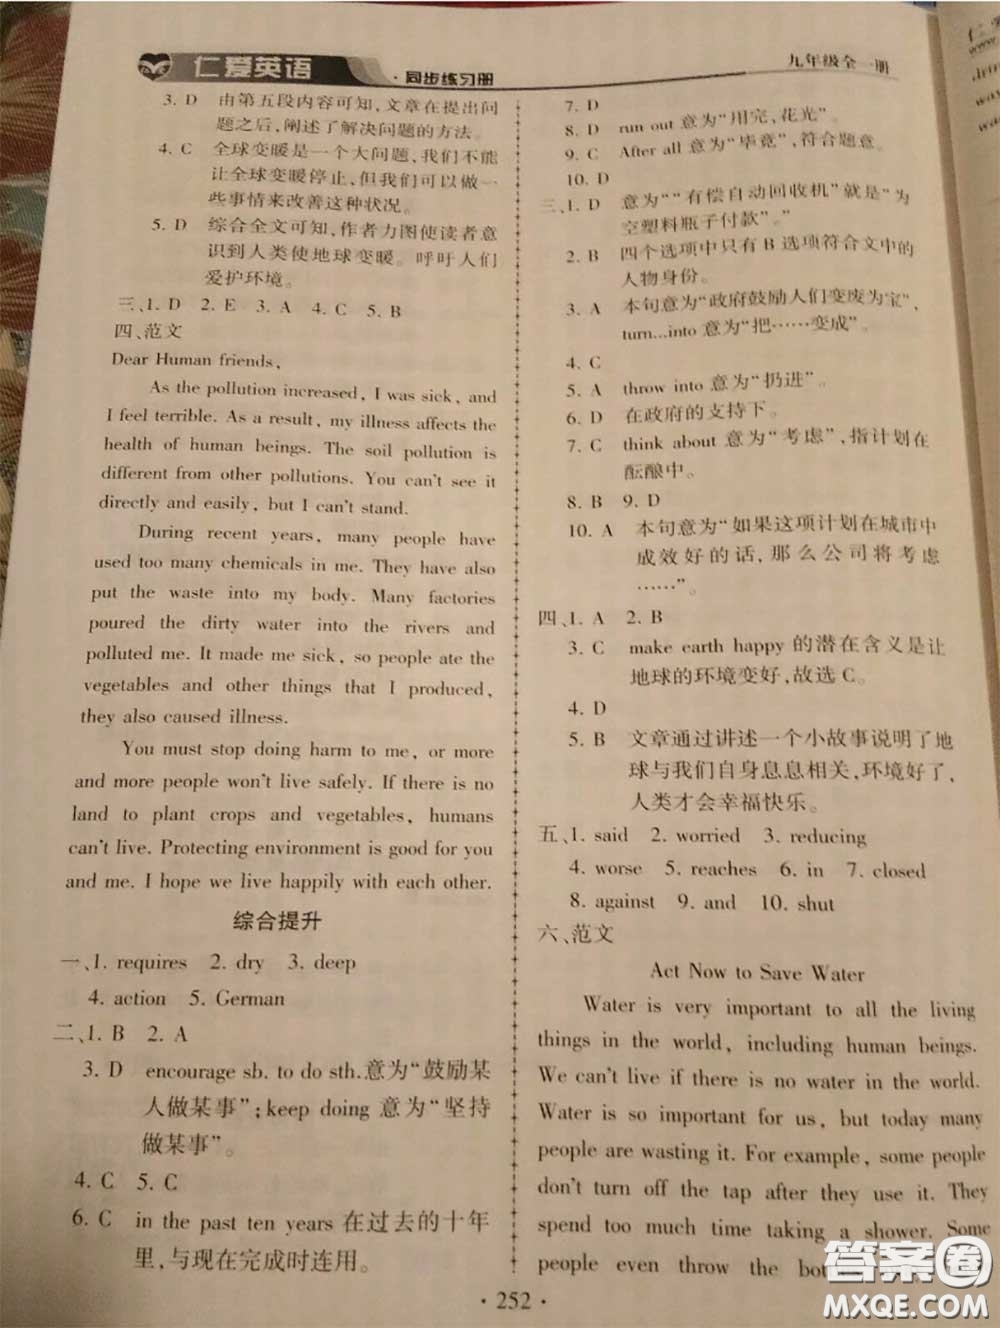 仁爱英语
·同步练习册
九年级全一册
3. D 由第五段内容可知,文章在提出问
题之后,阐述了解决问题的方法。
4. C 全球变暖是一个大问题,我们不能
让全球变暖停止,但我们可以做一
些事情来改善这种状况。
5. D 综合全文可知,作者力图使读者意
识到人类使地球变暖。呼吁人们
爱护环境。
三、1. D 2. E 3. A 4. C 5. B
四、范文
Dear Human friends,
As the pollution increased, I was sick, and
I feel terrible. As a result, my illness affects the
health of human beings. The soil pollution is
different from other pollutions. You can't see it
directly and easily, but I can't stand.
During recent years, many people have
used too many chemicals in me. They have also
put the waste into my body. Many factories
poured the dirty water into the rivers and
polluted me. It made me sick, so people ate the
vegetables and other things that I produced,
they also caused illness.
You must stop doing harm to me, or more
and more people won't live safely. If there is no
land to plant crops and vegetables, humans
can't live. Protecting environment is good for you
and me. I hope we live happily with each other.
综合提升
一、1. requires 2. dry 3. deep
4. action 5. German
二、1. B 2. A
3. D encourage sb. to do sth.意为“鼓励某
人做某事”;keep doing 意为“坚持
做某事”。
4. C 5. C
6. C in the past ten years 在过去的十年
里,与现在完成时连用。
7. D
8. D run out 意为“用完,花光”。
9. C After all 意为“毕竟”,符合题意。
10. D
三、1. D 意为““有偿自动回收机”就是“为
空塑料瓶子付款”。”
2. B 四个选项中只有 B 选项符合文中的
人物身份。
3. A 本句意为“政府鼓励人们变废为宝”,
turn...into 意为“把……变成”。
4. C
5. A throw into 意为“扔进”。
6. D 在政府的支持下。
7. C think about 意为“考虑”,指计划在
酝酿中。
8. B 9. D
10. A 本句意为“如果这项计划在城市中
成效好的话,那么公司将考虑
……”
四、1. A 2. B
3. C make earth happy 的潜在含义是让
地球的环境变好,故选 C。
4. D
5. B 文章通过讲述一个小故事说明了地
球与我们自身息息相关,环境好了,
人类才会幸福快乐。
五、1. said 2. worried 3. reducing
4. worse 5. reaches 6. in 7. closed
8. against 9. and 10. shut
六、范文
Act Now to Save Water
Water is very important to all the living
things in the world, including human beings.
We can't live if there is no water in the world.
Water is so important for us, but today many
people are wasting it. For example, some people
don't turn off the tap after they use it. They
spend too much time taking a shower. Some
people even throw the
· 252 ·
答案圈
MXQE.COM